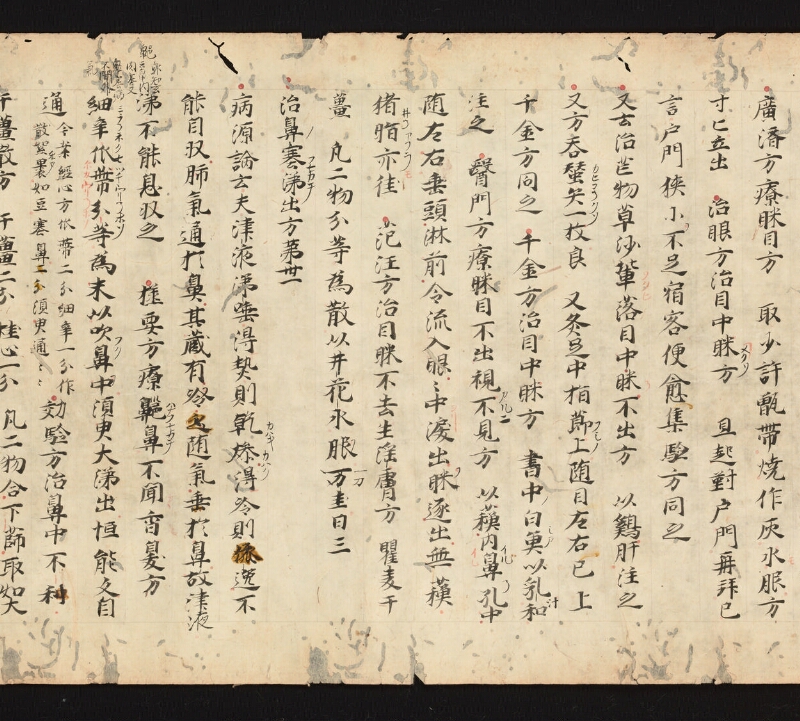 廣濟方療眯目方 取少許甑帶燒作灰水服方
寸匕立出 治眼方治目中眯方 且起對戶門再拜已
言戶門狹小不足宿客便愈集驗方同之
又云治芒物草沙輩落目中眯不出方 以鷄肝注之
又方吞蠶矢一枚良 又灸足中指節上随目左右已上
千金方同之 千金方治目中眯方 書中白魚以乳和
注之 醫門方療眯目不出視不見方 以蘘內鼻孔中
随左右垂頭淋前令流入眼〻中淚出眯逐出無蘘
猪脂亦佳 范汪方治目眯不去生淫膚方 瞿麦干
薑 凡二物分等為散以井花水服一刀圭日三
治鼻塞涕出方第卅一
病源論云夫津液涕唾得熱則乾燥得冷則流逸不
能自収肺氣通於鼻其藏有冷〻随氣垂於鼻故津液
涕不能息収之 極要方療齆鼻不聞香臰方
細辛瓜蒂分等為末以吹鼻中須臾大涕出恒能久自
通 令案經心方瓜蒂二分細辛一分作
散絮裹如豆塞鼻二分須臾通〻 効驗方治鼻中不利
干薑散方 干薑二分 桂心一分 凡二物合下篩取如大